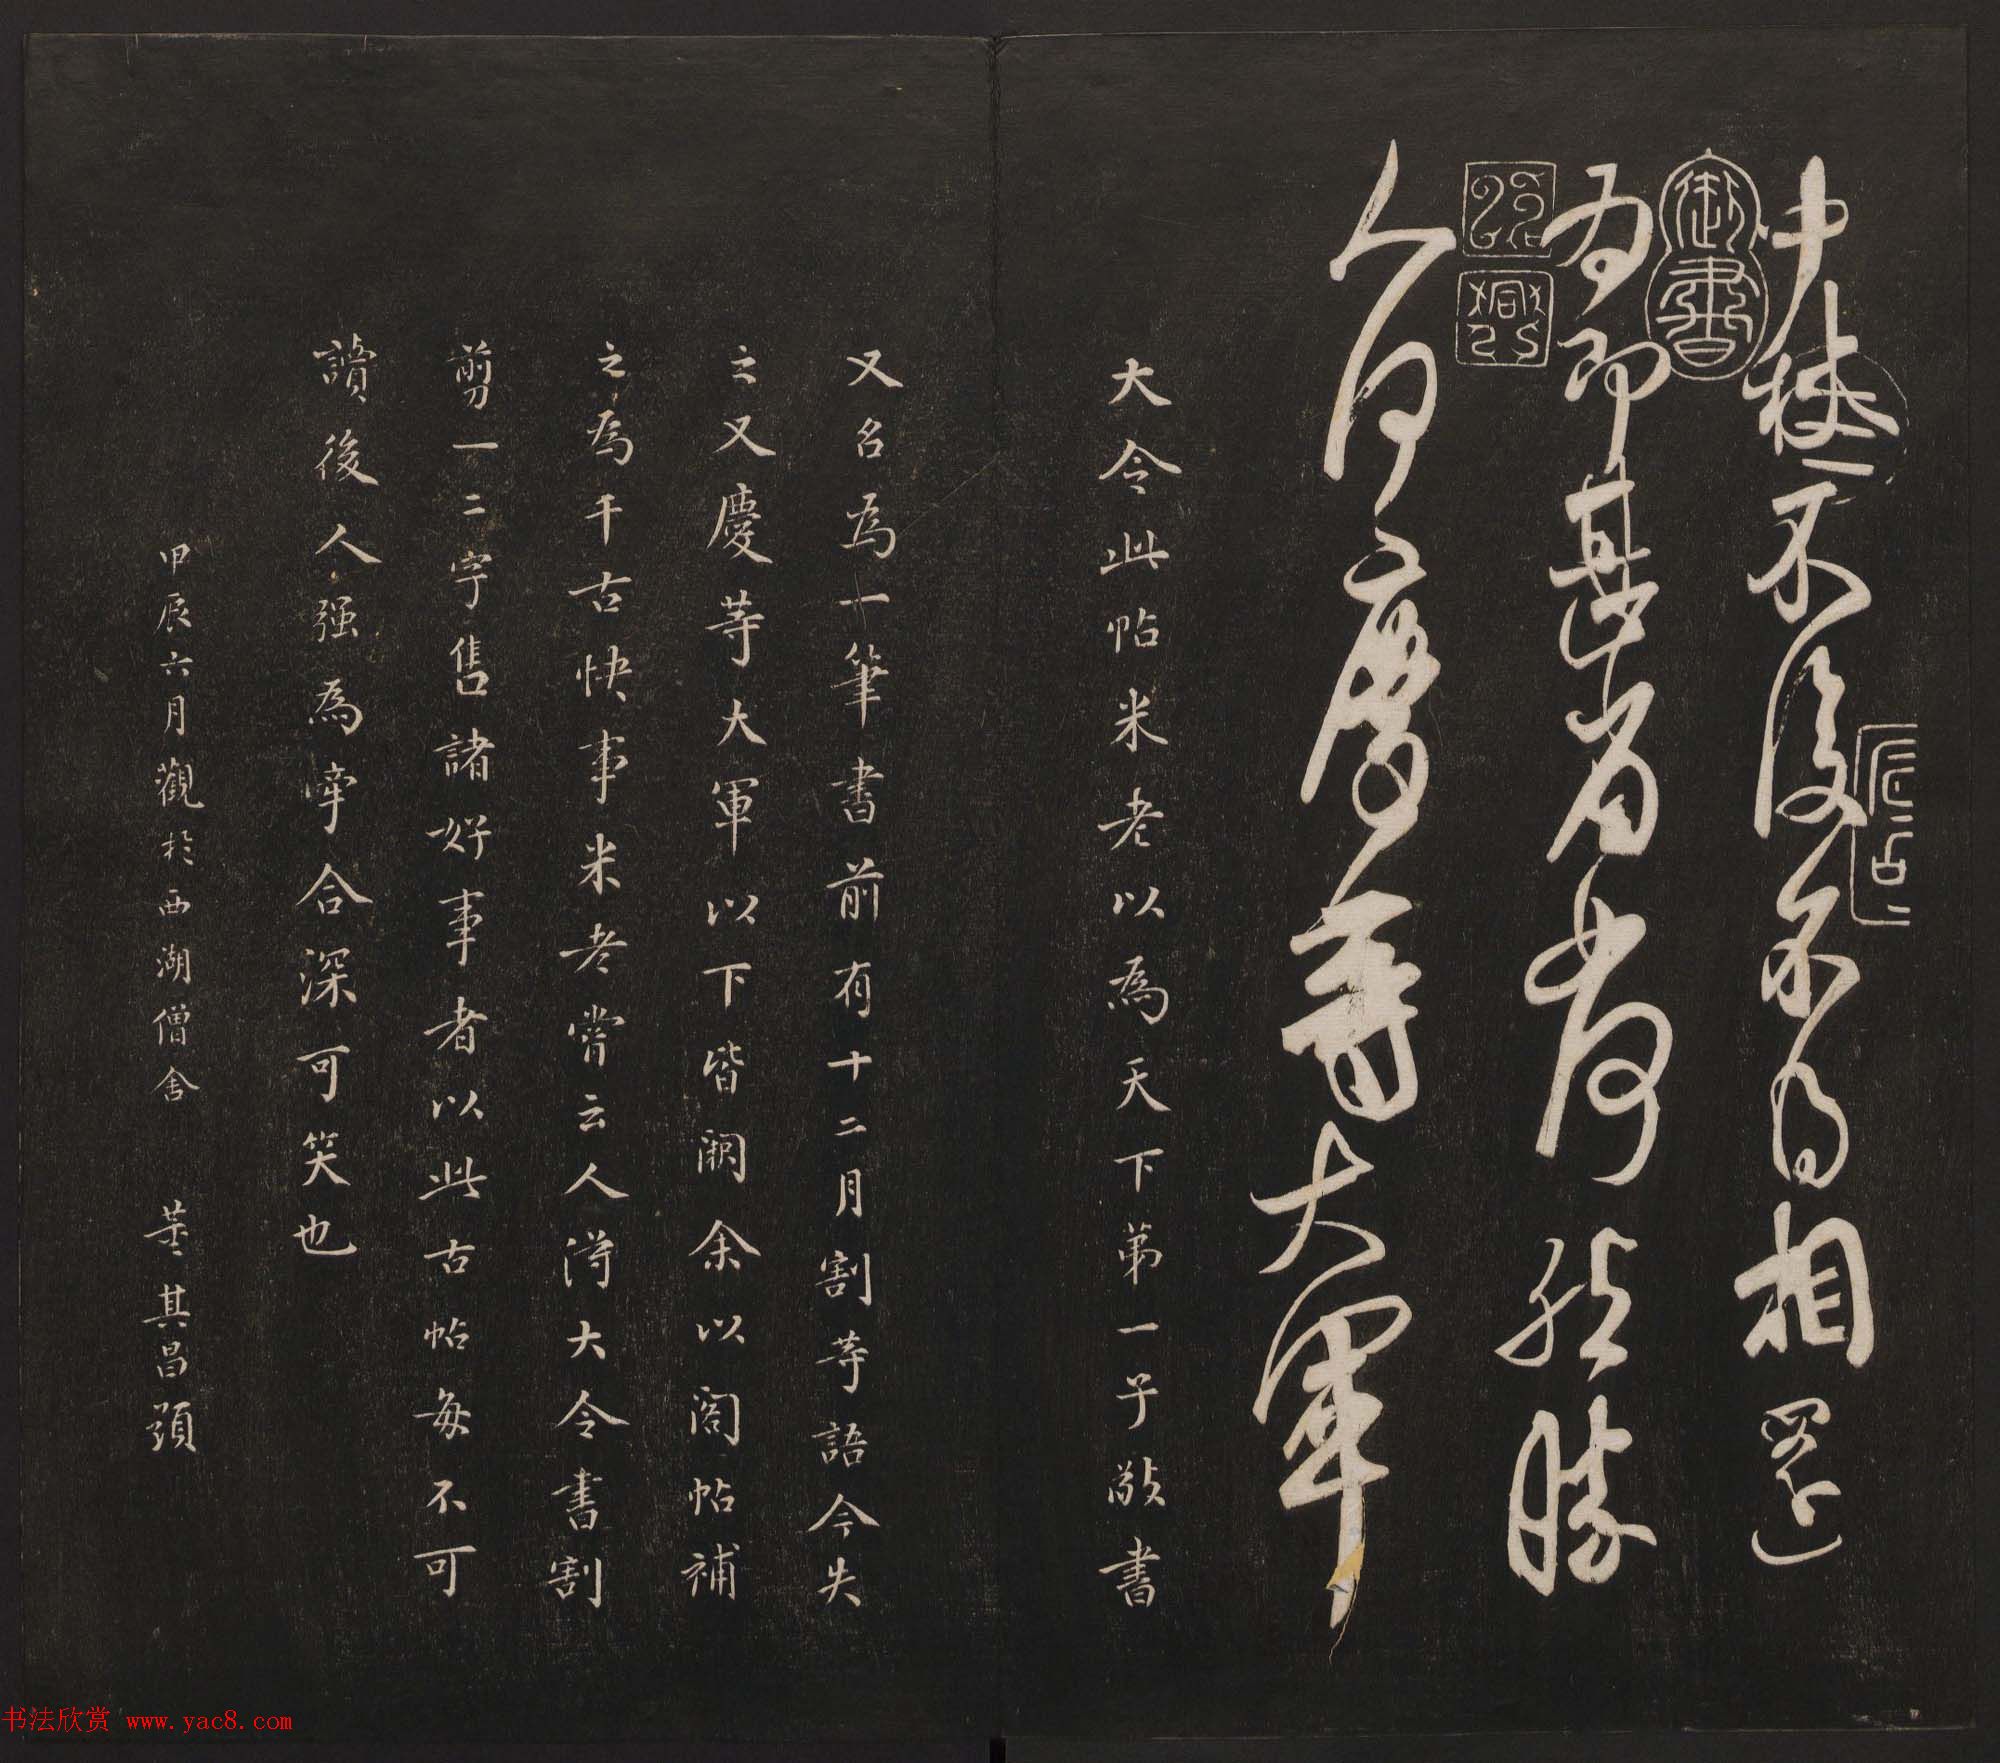 中秋不復不得相還
為即甚省如何然勝
人何慶等大軍
御書
大令此帖米老以為天下第一子敬書
又名為一筆書前有十二月割等語今失
之又慶等大軍以下皆闕余以閣帖補
之為千古快事米老嘗云人得大令書割
剪一二字售諸好事者以此古帖每不可
讀後人强為牽合深可笑也
甲辰六月觀於西湖僧舍 董其昌題
书法欣赏 www.yac8.com